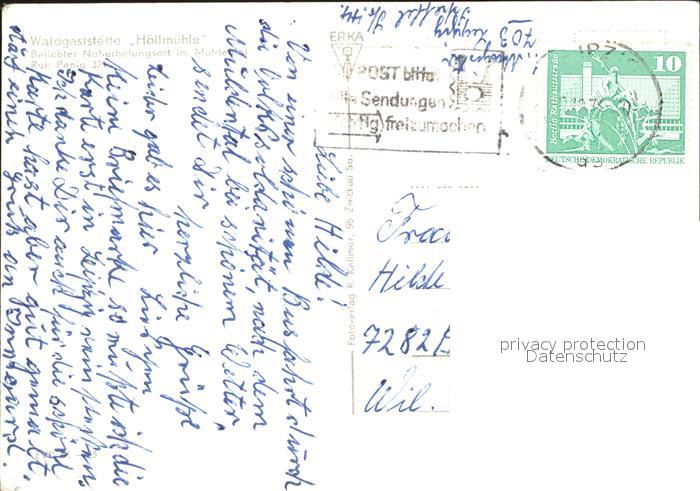 Waldgaststätte „Höllmühle"
Beliebter Naherholungsort im Mulde
Ruf: Penig 32
ERKA
Fotoverlag R. Kallmer, 95 Zwickau Sa.
POST bittet
Sendungen
freizumachen
10
Berlin-Rathausstraße
DEUTSCHE DEMOKRATISCHE REPUBLIK
703 Leipzig
Liebe Hilde!
Von einer schönen Busfahrt durch
die Volkssolidarität, nach dem
Muldental bei schönem Wetter,
sendet Dir herzliche Grüße
Leider gab es hier
keine Briefmarke so mußte ich die
Karte erst in Leipzig
Ich danke Dir auch für die schöne
Karte hast aber gut gemalt.
einen Gruß an Irmgard.
Frau
Hilde
7282
Wil.
privacy protection
Datenschutz